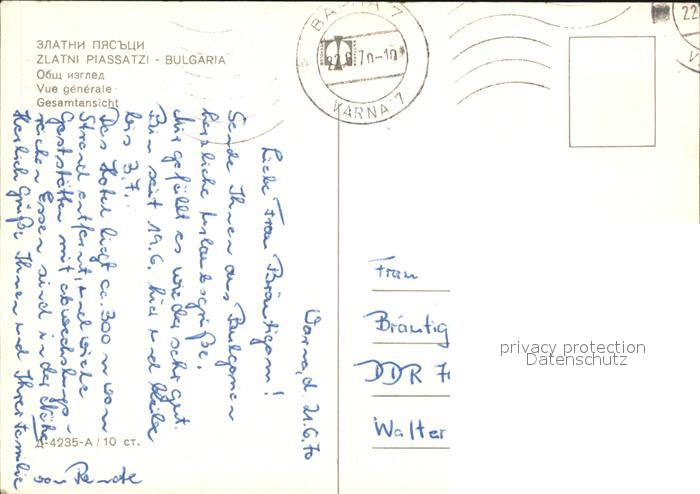 ЗЛАТНИ ПЯСЪЦИ
ZLATNI PIASSATZI - BULGARIA
Общ изглед
Vue générale
Gesamtansicht
ВАРНА 7
22.6.70-10
VARNA 7
22
Varna, d. 21.6.70
Liebe Frau Bräutigam!
Sende Ihnen aus Bulgarien
herzliche Urlaubsgrüße.
Mir gefällt es wieder sehr gut.
Bin seit 19.6. hier und bleibe
bis 3.7.
Das Hotel liegt ca. 300 m vom
Strand entfernt, und viele
Gaststätten mit abwechslungs-
reichen Essen sind in der Nähe.
Herzliche Grüße Ihnen und Ihrer Familie
von Renate
Д-4235-А / 10 ст.
Frau
Bräutig
DDR 7
Walter
privacy protection
Datenschutz